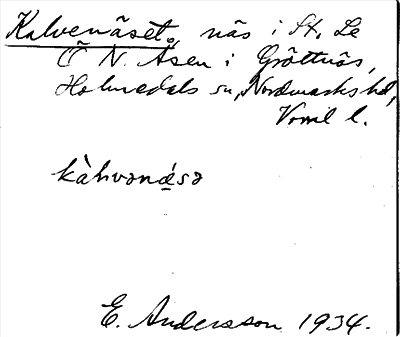 Kalvenäset, näs i St. Le
Ö N. Åsen i Gröttnäs,
Holmedals sn, Nordmarks hd,
Värml l.
kàhvənä́sə
E. Andersson 1934.